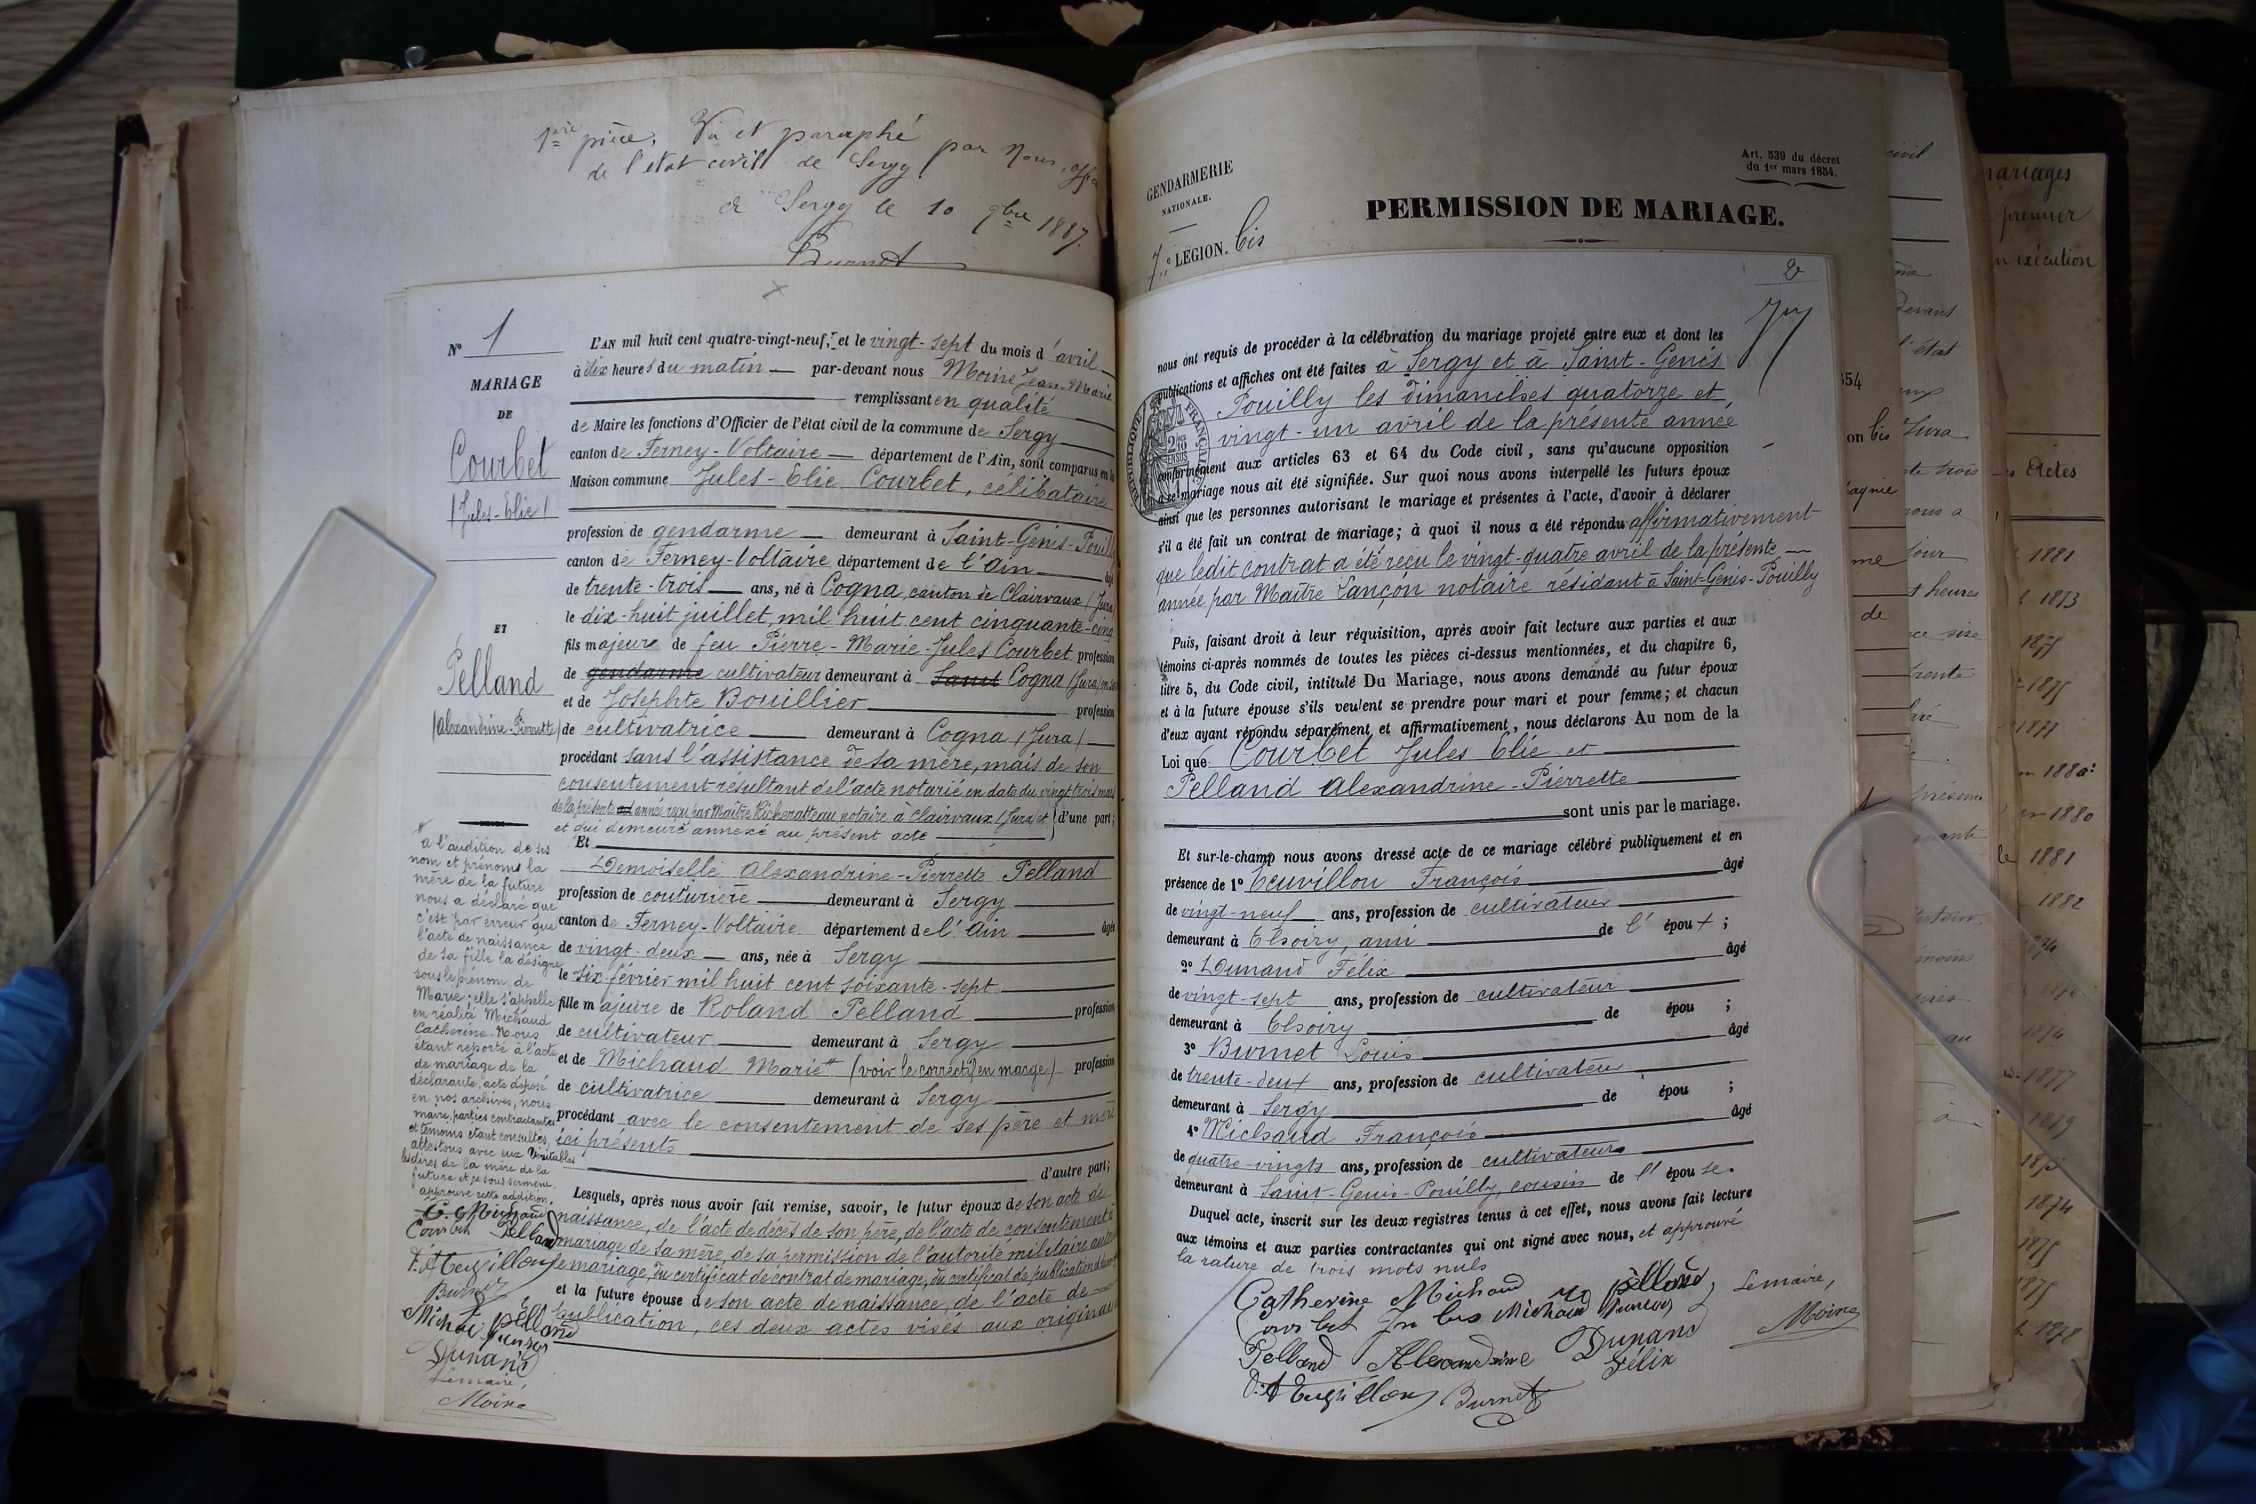 1ère pièce. Vu et paraphé par nous, offi
de l'état civil de Sergy
à Sergy le 10 9bre 1887.
Burnet
N° 1
MARIAGE
DE
Courbet
(Jules-Elie)
ET
Pelland
(Alexandrine-Pierrette)
L'AN mil huit cent quatre-vingt-neuf, et le vingt-sept du mois d'avril
à dix heures du matin par-devant nous Moine Jean-Marie
remplissant en qualité
de Maire les fonctions d'Officier de l'état civil de la commune de Sergy
canton de Ferney-Voltaire département de l'Ain, sont comparus en la
Maison commune Jules-Elie Courbet, célibataire
profession de gendarme demeurant à Saint-Genis-Pouilly
canton de Ferney-Voltaire département de l'Ain âgé
de trente-trois ans, né à Cogna, canton de Clairvaux (Jura)
le dix-huit juillet, mil huit cent cinquante-cinq
fils majeure de feu Pierre-Marie-Jules Courbet profession
de gendarme cultivateur demeurant à Saint Cogna (Jura)
et de Josephte Bouillier profession
de cultivatrice demeurant à Cogna (Jura)
procédant sans l'assistance de sa mère, mais de son
consentement résultant de l'acte notarié en date du vingt trois mars
de la présente année reçu par Maître notaire à Clairvaux (Jura) et d'une part;
et qui demeure annexé au présent acte
Et
Demoiselle Alexandrine-Pierrette Pelland
profession de couturière demeurant à Sergy
canton de Ferney-Voltaire département de l'Ain âgée
de vingt-deux ans, née à Sergy
le six février mil huit cent soixante-sept
fille majeure de Roland Pelland profession
de cultivateur demeurant à Sergy
et de Michaud Marie (voir le correctif en marge) profession
de cultivatrice demeurant à Sergy
procédant avec le consentement de ses père et mère
ici présents
d'autre part;
Lesquels, après nous avoir fait remise, savoir, le futur époux de son acte de
naissance, de l'acte de décès de son père, de l'acte de consentement à
mariage de sa mère, de sa permission de l'autorité militaire
le mariage, du certificat de contrat de mariage, du certificat de publication
et la future épouse de son acte de naissance, de l'acte de
publication, ces deux actes visés aux originaux
à l'audition de ses
nom et prénoms la
mère de la future
nous a déclaré que
c'est par erreur que
l'acte de naissance
de sa fille la désigne
sous le prénom de
Marie; elle s'appelle
en réalité Michaud
Catherine. Nous
étant reporté à l'acte
de mariage de la
déclarante, acte déposé
en nos archives, nous
maire, parties contractantes
et témoins étant consultés,
attestons avec eux véritables
les dires de la mère de la
future et je sous serment
approuvé cette addition.
C. Michaud
Courbet Pelland
Burnet
Michaud Pelland
Dunand
Le maire,
Moine
GENDARMERIE
NATIONALE.
7e LÉGION. bis
Art. 539 du décret
du 1er mars 1854.
PERMISSION DE MARIAGE.
2
nous ont requis de procéder à la célébration du mariage projeté entre eux et dont les
publications et affiches ont été faites à Sergy et à Saint-Genis
Pouilly les dimanches quatorze et
vingt-un avril de la présente année
conformément aux articles 63 et 64 du Code civil, sans qu'aucune opposition
à ce mariage nous ait été signifiée. Sur quoi nous avons interpellé les futurs époux
ainsi que les personnes autorisant le mariage et présentes à l'acte, d'avoir à déclarer
s'il a été fait un contrat de mariage; à quoi il nous a été répondu affirmativement
que ledit contrat a été reçu le vingt-quatre avril de la présente
année par Maître Lançon notaire résidant à Saint-Genis-Pouilly
Puis, faisant droit à leur réquisition, après avoir fait lecture aux parties et aux
témoins ci-après nommés de toutes les pièces ci-dessus mentionnées, et du chapitre 6,
titre 5, du Code civil, intitulé Du Mariage, nous avons demandé au futur époux
et à la future épouse s'ils veulent se prendre pour mari et pour femme; et chacun
d'eux ayant répondu séparément et affirmativement, nous déclarons Au nom de la
Loi que Courbet Jules Elie et
Pelland Alexandrine-Pierrette
sont unis par le mariage.
Et sur-le-champ nous avons dressé acte de ce mariage célébré publiquement et en
présence de 1° Teuvillon François âgé
de vingt-neuf ans, profession de cultivateur
demeurant à Thoiry, ami de l'époux;
2° Dunand Félix âgé
de vingt-sept ans, profession de cultivateur
demeurant à Thoiry de épou ;
3° Burnet Louis âgé
de trente-deux ans, profession de cultivateur
demeurant à Sergy de épou ;
4° Michaud François âgé
de quatre-vingts ans, profession de cultivateur
demeurant à Saint-Genis-Pouilly, cousin de l'épouse.
Duquel acte, inscrit sur les deux registres tenus à cet effet, nous avons fait lecture
aux témoins et aux parties contractantes qui ont signé avec nous, et approuvé
la rature de trois mots nuls
Catherine Michaud Pelland Le maire,
Courbet Michaud Moine
Pelland Alexandrine Dunand
Félix
Burnet
RÉPUBLIQUE FRANÇAISE
mariages
premier
exécution
Actes
1881
1873
1877
1880
1881
1882
1874
1877
1879
1874
1878